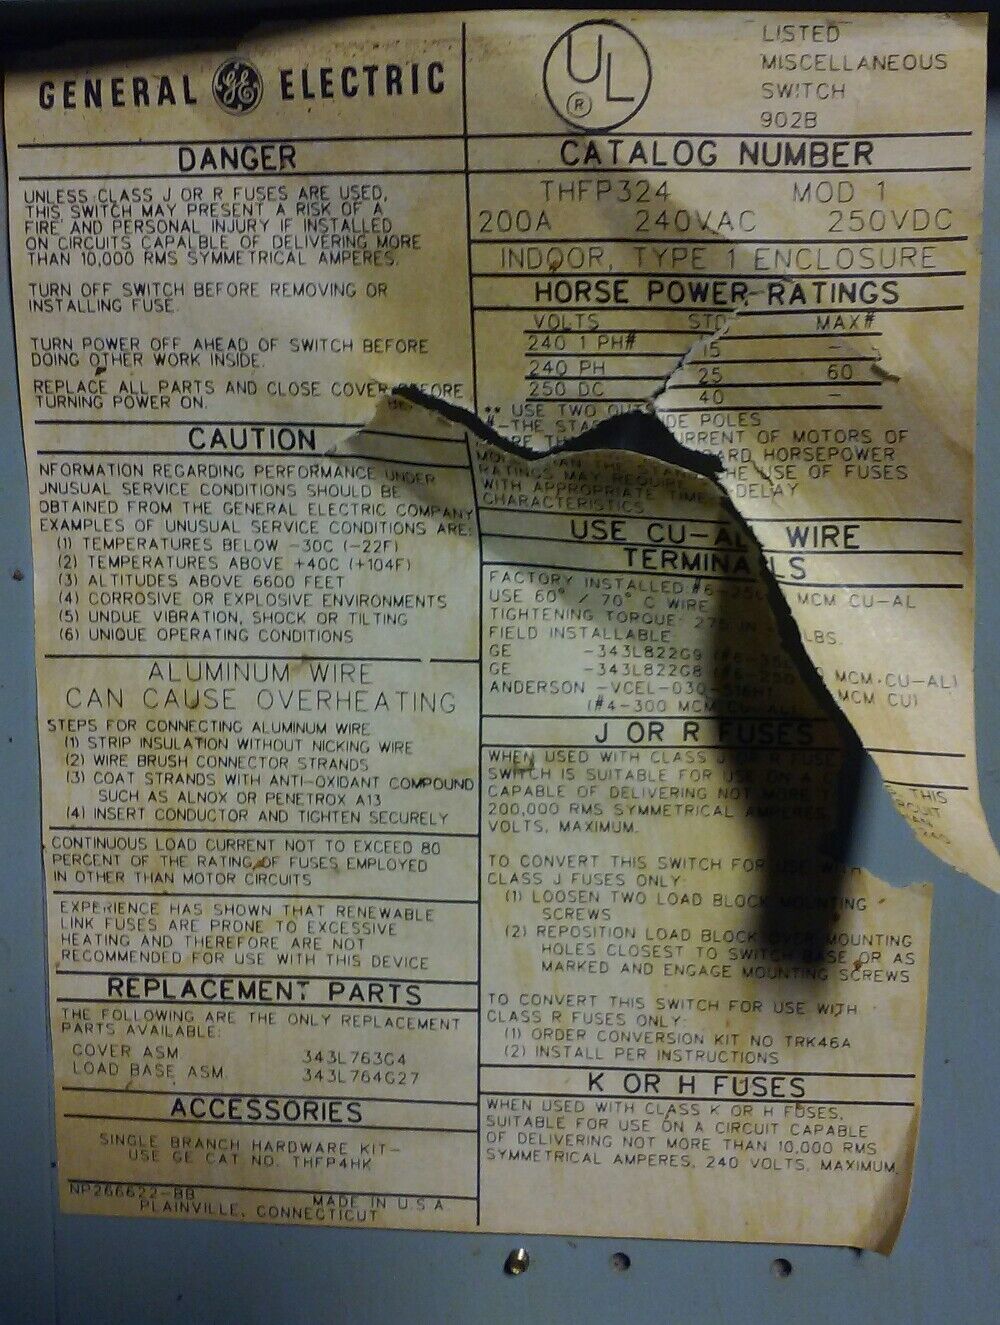 GENERAL GE ELECTRIC
DANGER
UNLESS CLASS J OR R FUSES ARE USED,
THIS SWITCH MAY PRESENT A RISK OF A
FIRE AND PERSONAL INJURY IF INSTALLED
ON CIRCUITS CAPALBLE OF DELIVERING MORE
THAN 10,000 RMS SYMMETRICAL AMPERES.
TURN OFF SWITCH BEFORE REMOVING OR
INSTALLING FUSE.
TURN POWER OFF AHEAD OF SWITCH BEFORE
DOING OTHER WORK INSIDE.
REPLACE ALL PARTS AND CLOSE COVER BEFORE
TURNING POWER ON.
CAUTION
NFORMATION REGARDING PERFORMANCE UNDER
UNUSUAL SERVICE CONDITIONS SHOULD BE
OBTAINED FROM THE GENERAL ELECTRIC COMPANY
EXAMPLES OF UNUSUAL SERVICE CONDITIONS ARE:
(1) TEMPERATURES BELOW -30C (-22F)
(2) TEMPERATURES ABOVE +40C (+104F)
(3) ALTITUDES ABOVE 6600 FEET
(4) CORROSIVE OR EXPLOSIVE ENVIRONMENTS
(5) UNDUE VIBRATION, SHOCK OR TILTING
(6) UNIQUE OPERATING CONDITIONS
ALUMINUM WIRE
CAN CAUSE OVERHEATING
STEPS FOR CONNECTING ALUMINUM WIRE
(1) STRIP INSULATION WITHOUT NICKING WIRE
(2) WIRE BRUSH CONNECTOR STRANDS
(3) COAT STRANDS WITH ANTI-OXIDANT COMPOUND
SUCH AS ALNOX OR PENETROX A13
(4) INSERT CONDUCTOR AND TIGHTEN SECURELY
CONTINUOUS LOAD CURRENT NOT TO EXCEED 80
PERCENT OF THE RATING OF FUSES EMPLOYED
IN OTHER THAN MOTOR CIRCUITS
EXPERIENCE HAS SHOWN THAT RENEWABLE
LINK FUSES ARE PRONE TO EXCESSIVE
HEATING AND THEREFORE ARE NOT
RECOMMENDED FOR USE WITH THIS DEVICE
REPLACEMENT PARTS
THE FOLLOWING ARE THE ONLY REPLACEMENT
PARTS AVAILABLE:
COVER ASM. 343L763G4
LOAD BASE ASM. 343L764G27
ACCESSORIES
SINGLE BRANCH HARDWARE KIT-
USE GE CAT NO. THFP4HK
NP266622-BB MADE IN U.S.A.
PLAINVILLE, CONNECTICUT
UL ®
LISTED
MISCELLANEOUS
SWITCH
902B
CATALOG NUMBER
THFP324 MOD 1
200A 240VAC 250VDC
INDOOR, TYPE 1 ENCLOSURE
HORSE POWER RATINGS
VOLTS STD MAX#
240 1 PH# 15 -
240 PH 25 60
250 DC 40 -
** USE TWO OUTSIDE POLES
#-THE CURRENT OF MOTORS OF
HORSEPOWER
RATINGS MAY REQUIRE THE USE OF FUSES
WITH APPROPRIATE TIME-DELAY
CHARACTERISTICS
USE CU-AL WIRE
TERMINALS
FACTORY INSTALLED #6-250 MCM CU-AL
USE 60° / 70° C WIRE
TIGHTENING TORQUE: 275 IN LBS.
FIELD INSTALLABLE
GE -343L822G9
GE -343L822G8 (#6-250 MCM CU-AL)
ANDERSON -VCEL-030- MCM CU)
(#4-300 MCM CU-AL)
J OR R FUSES
WHEN USED WITH CLASS J OR R FUSES, THIS
SWITCH IS SUITABLE FOR USE ON A CIRCUIT
CAPABLE OF DELIVERING NOT MORE THAN
200,000 RMS SYMMETRICAL AMPERES, 240
VOLTS, MAXIMUM.
TO CONVERT THIS SWITCH FOR USE WITH
CLASS J FUSES ONLY:
(1) LOOSEN TWO LOAD BLOCK MOUNTING
SCREWS
(2) REPOSITION LOAD BLOCK OVER MOUNTING
HOLES CLOSEST TO SWITCH BASE OR AS
MARKED AND ENGAGE MOUNTING SCREWS
TO CONVERT THIS SWITCH FOR USE WITH
CLASS R FUSES ONLY:
(1) ORDER CONVERSION KIT NO TRK46A
(2) INSTALL PER INSTRUCTIONS
K OR H FUSES
WHEN USED WITH CLASS K OR H FUSES,
SUITABLE FOR USE ON A CIRCUIT CAPABLE
OF DELIVERING NOT MORE THAN 10,000 RMS
SYMMETRICAL AMPERES, 240 VOLTS, MAXIMUM.